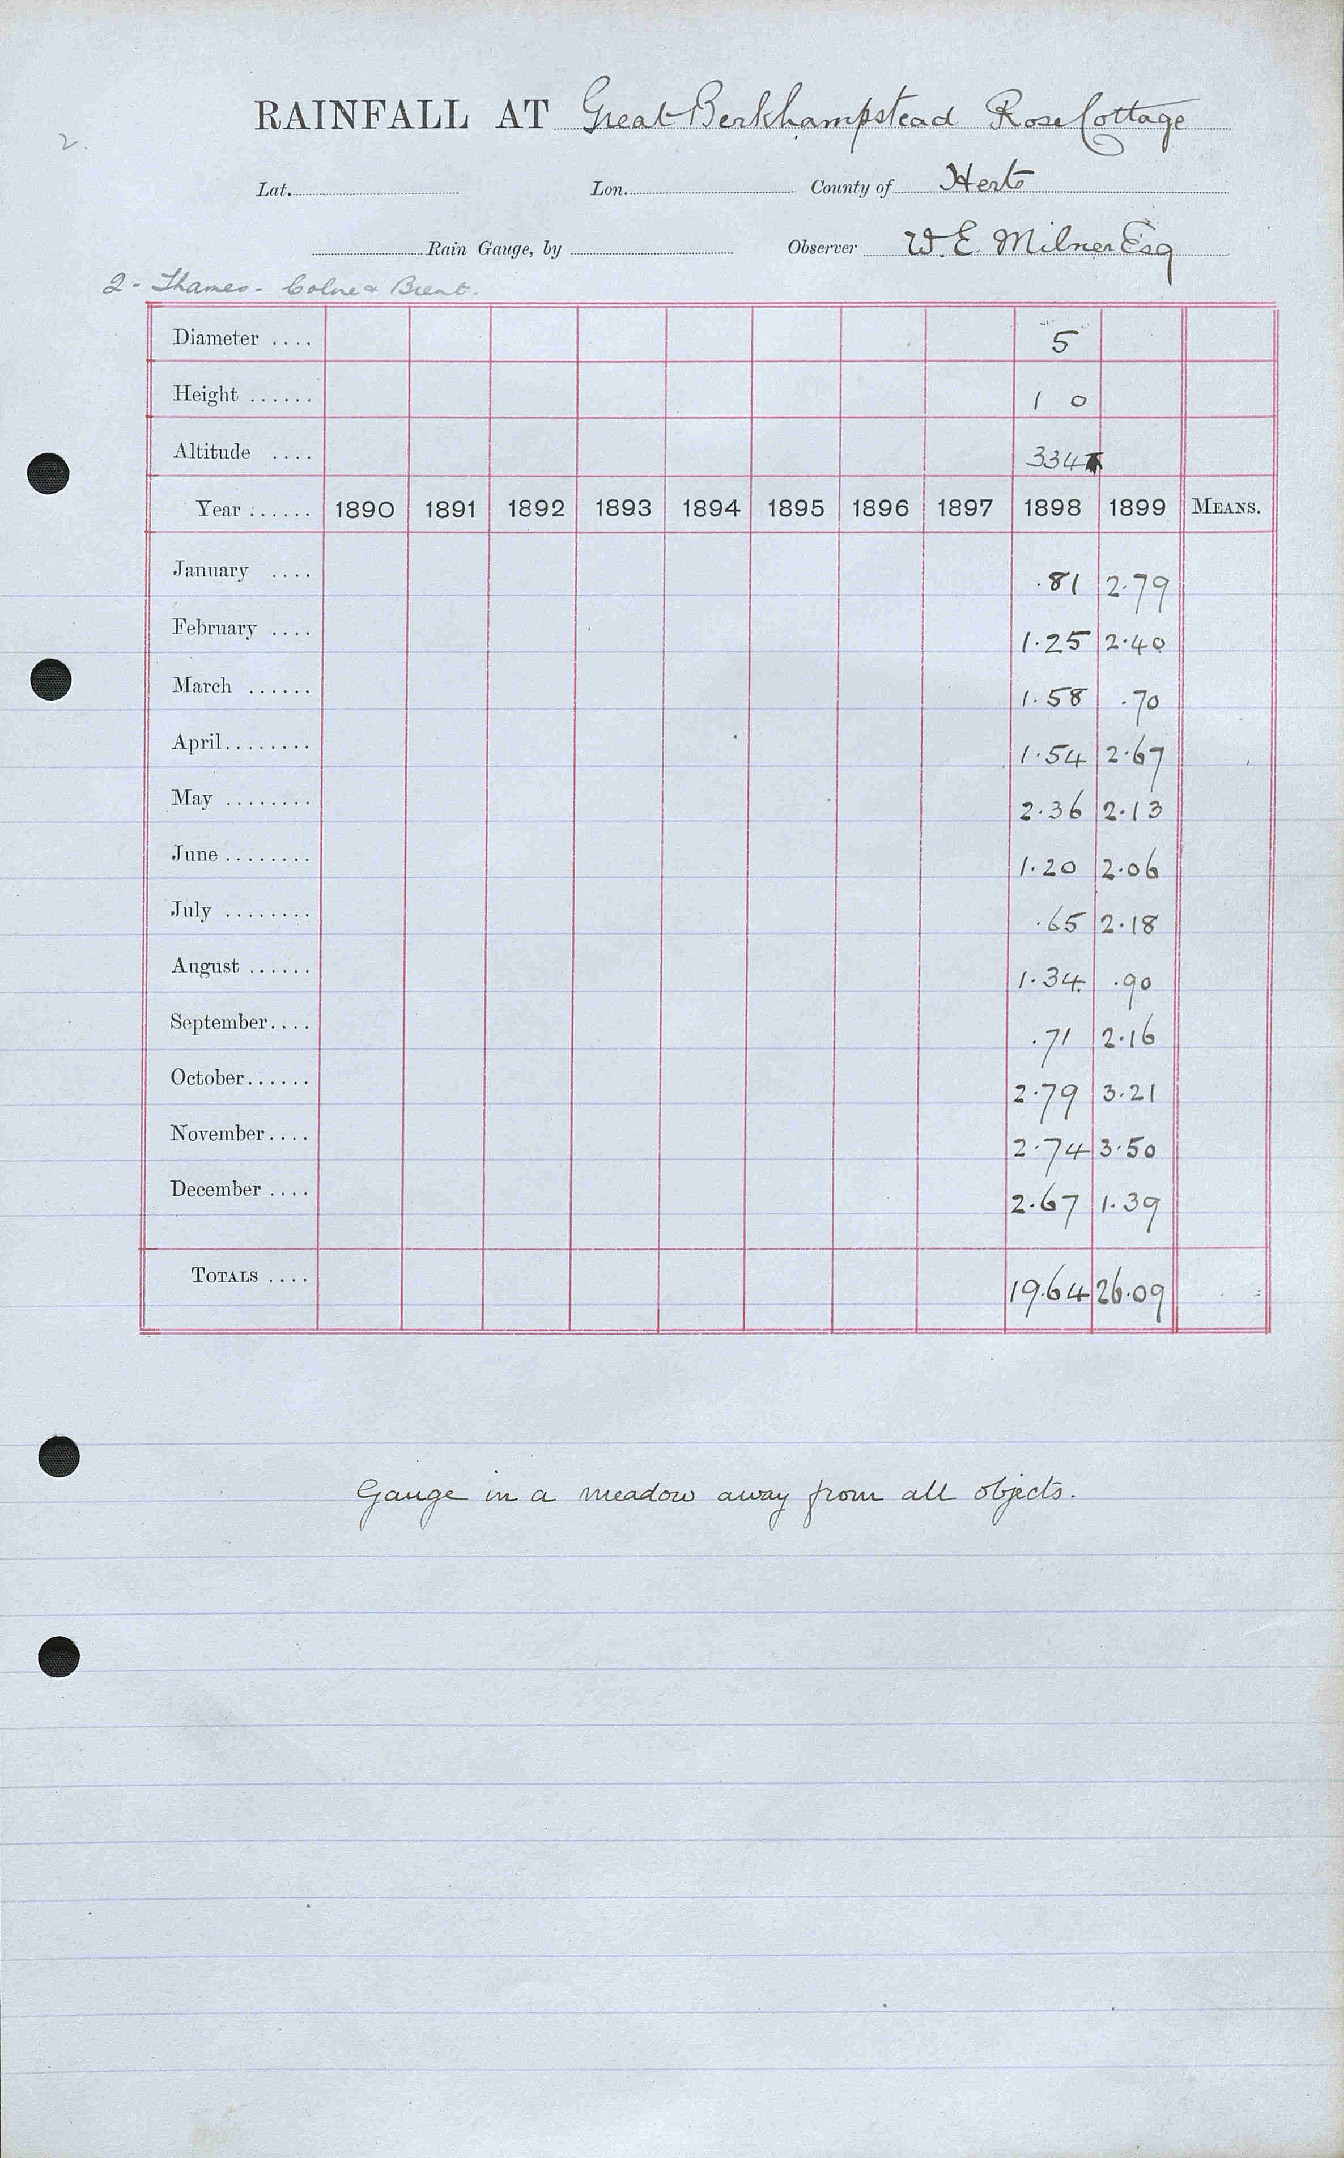 RAINFALL AT Great Berkhampstead Rose Cottage
2.
Lat. Lon. County of Herts
Rain Gauge, by Observer W. E. Milner Esq
2 - Thames - Colne & Brent.
Diameter .... 5
Height ...... 1 0
Altitude .... 334
Year ...... 1890 1891 1892 1893 1894 1895 1896 1897 1898 1899 MEANS.
January .... .81 2.79
February .... 1.25 2.40
March ...... 1.58 .70
April........ 1.54 2.67
May ........ 2.36 2.13
June ........ 1.20 2.06
July ........ .65 2.18
August ...... 1.34 .90
September.... .71 2.16
October...... 2.79 3.21
November.... 2.74 3.50
December .... 2.67 1.39
TOTALS .... 19.64 26.09
Gauge in a meadow away from all objects.